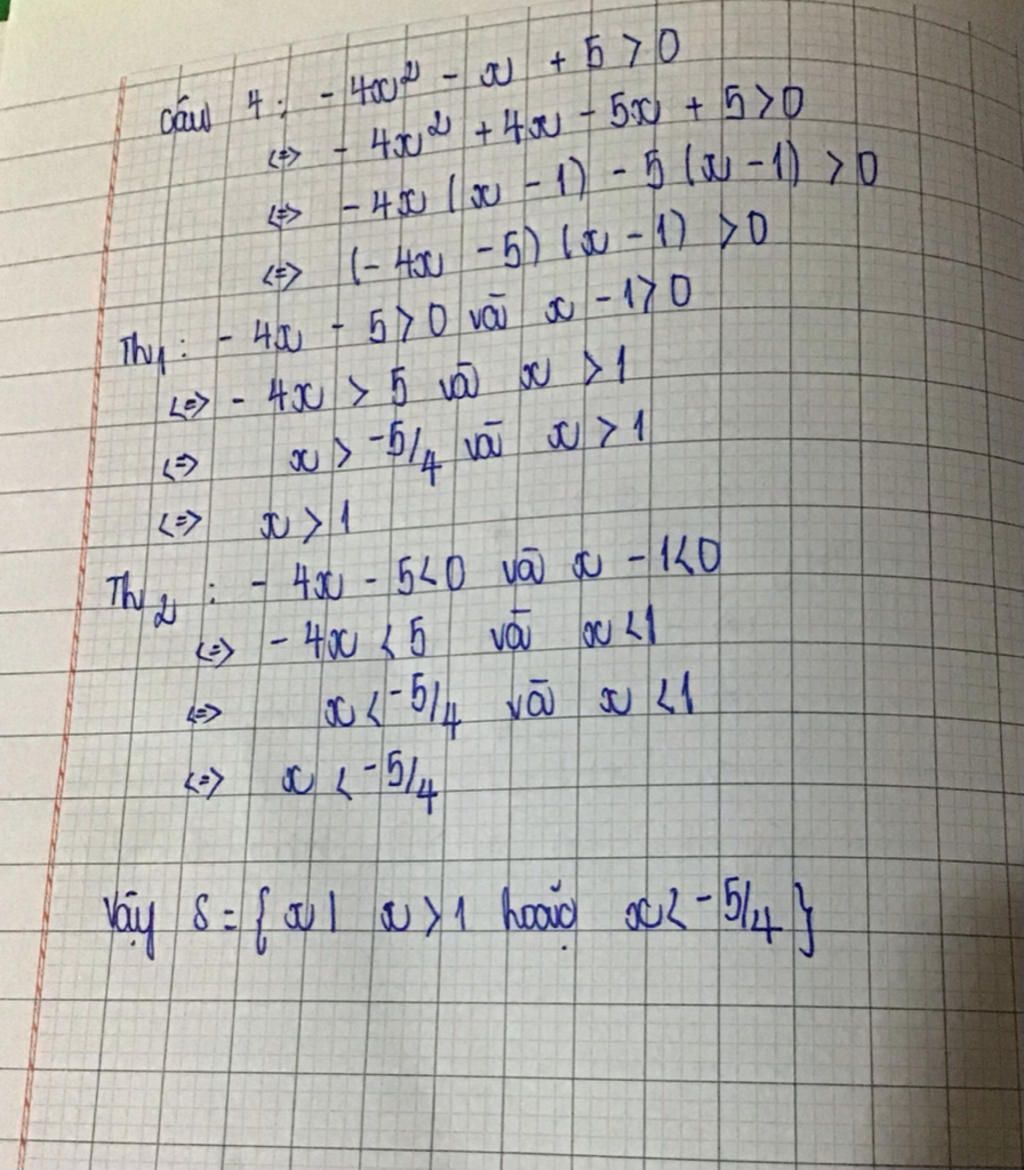 Câu 4: - 4x² - x + 5 > 0
<=> - 4x² + 4x - 5x + 5 > 0
<=> - 4x (x - 1) - 5 (x - 1) > 0
<=> (- 4x - 5) (x - 1) > 0
Th1: - 4x - 5 > 0 và x - 1 > 0
<=> - 4x > 5 và x > 1
<=> x > -5/4 và x > 1
<=> x > 1
Th2: - 4x - 5 < 0 và x - 1 < 0
<=> - 4x < 5 và x < 1
<=> x < -5/4 và x < 1
<=> x < -5/4
Vậy S = {x | x > 1 hoặc x < -5/4}